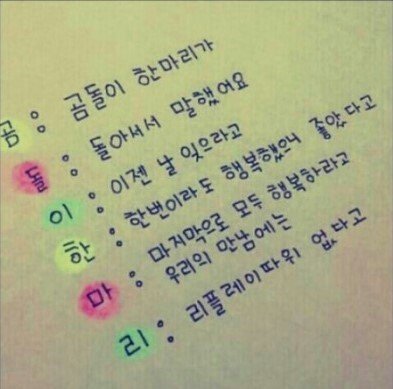 곰: 곰돌이 한마리가
돌: 돌아서서 말했어요
이: 이젠 날 잊으라고
한: 한번이라도 행복했으니 좋았다고
마: 마지막으로 모두 행복하라고
우리의 만남에는
리: 리플레이따위 없다고